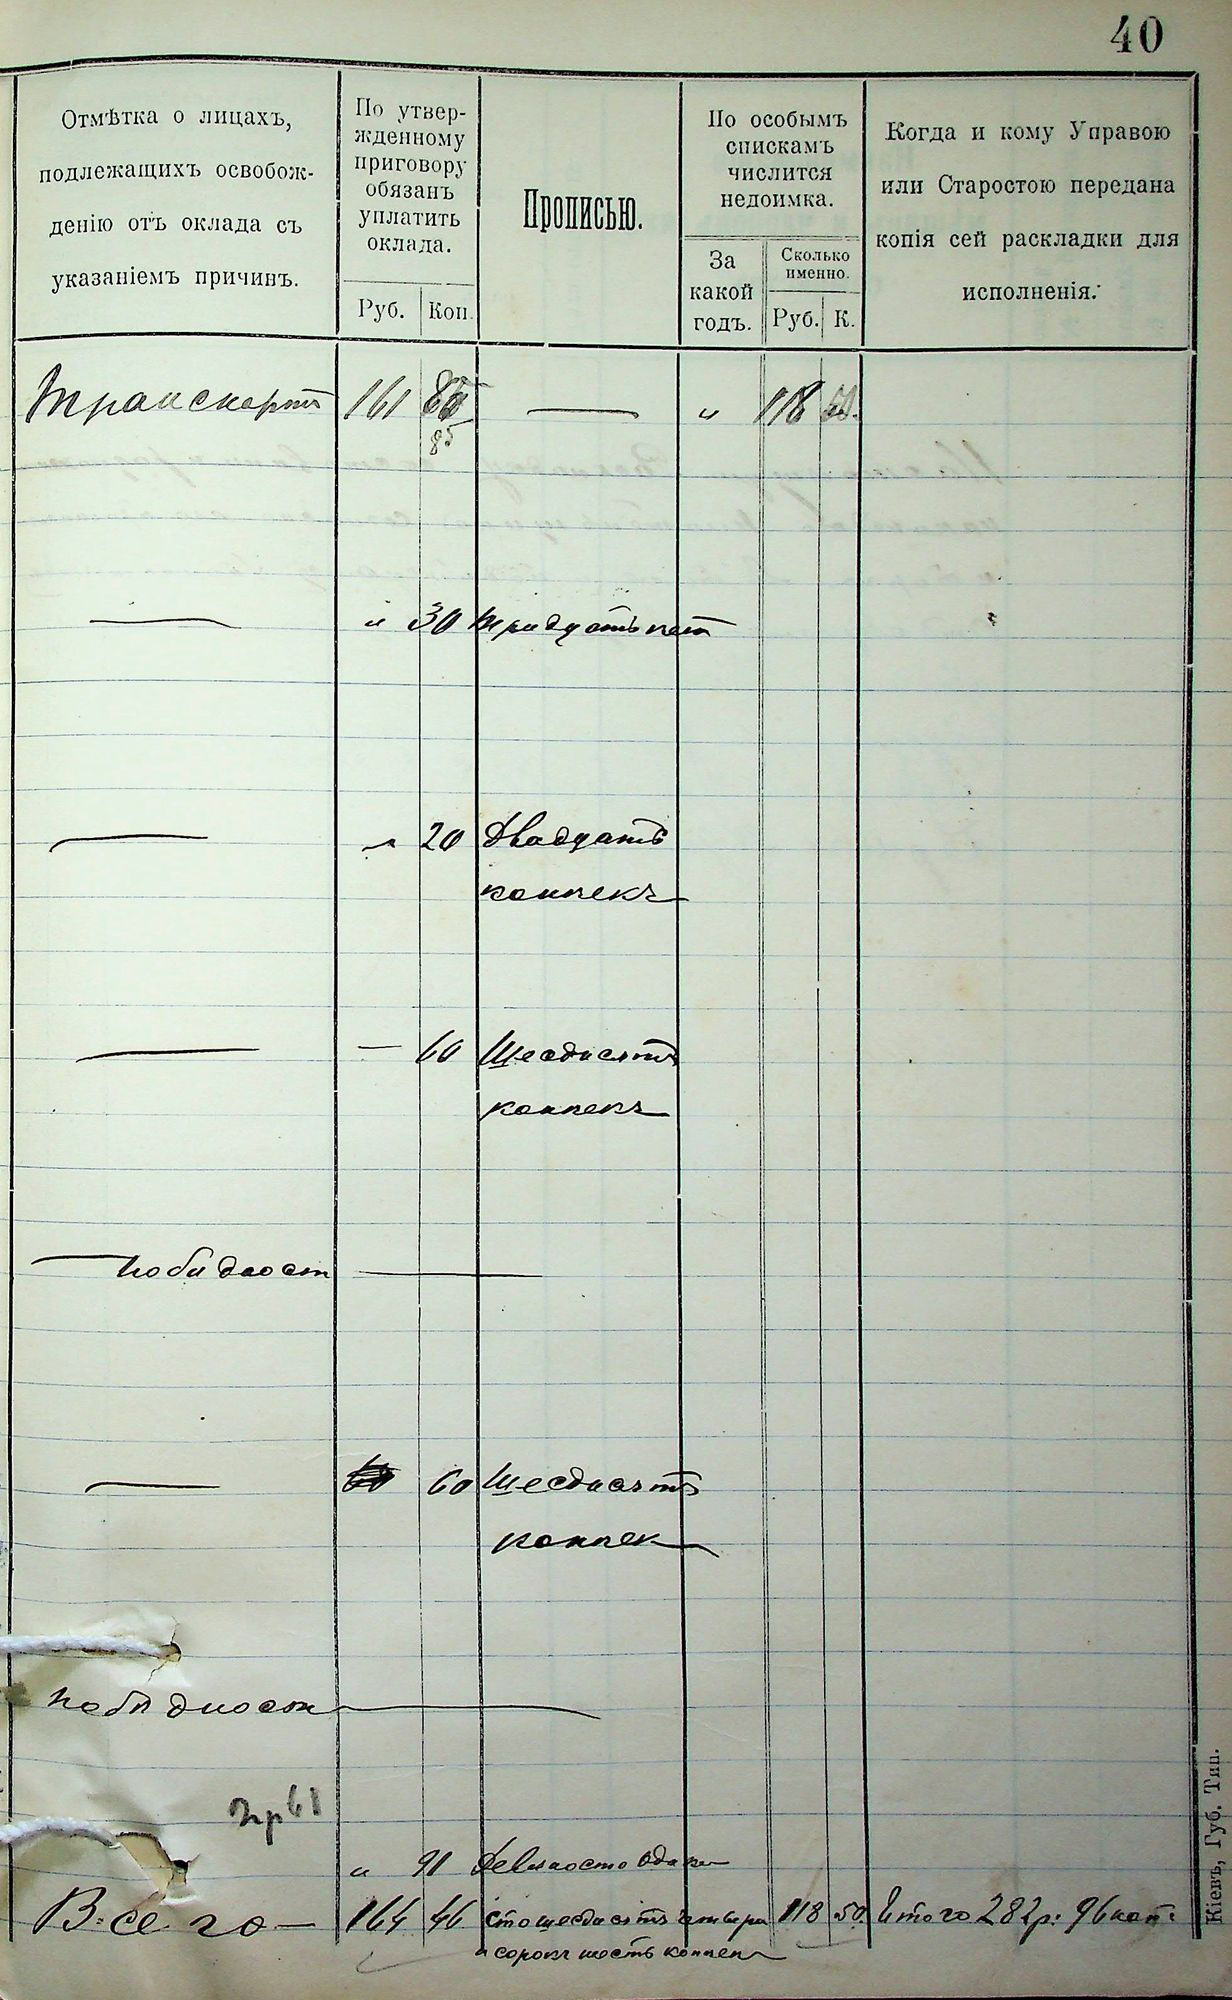 40
Отмѣтка о лицахъ,
подлежащихъ освобож-
денію отъ оклада съ
указаніемъ причинъ.
По утвер-
жденному
приговору
обязанъ
уплатить
оклада.
Руб. Коп.
Прописью.
По особымъ
спискамъ
числится
недоимка.
За
какой
годъ.
Сколько
именно.
Руб. К.
Когда и кому Управою
или Старостою передана
копія сей раскладки для
исполненія.
Транспортъ 161 85 — „ 118 50.
85
— „ 30 тридцать коп
— „ 20 Двадцать
копѣекъ
— — 60 Шесдисятъ
копѣекъ
— побидност —
— 60 Шесдисятъ
копѣек
побѣдност —
2 р 61
„ 91 Девяносто одна
Всего — 164 46 Сто шесдисятъ четыри 118 50. Итого 282 р: 96 коп:
и сорокъ шесть копѣек
Кіевъ, Губ. Тип.